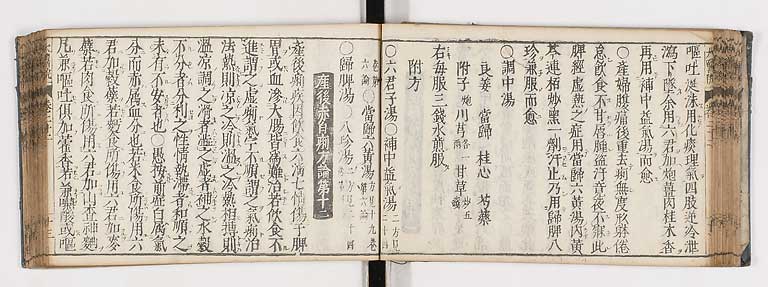 嘔吐涎沫用化痰理氣四肢逆冷泄
瀉下墜余用六君加炮薑肉桂木香
再用補中益氣湯而愈
○產婦腹痛後重去痢無度形體倦
怠飲食不甘唇睡盜汗夜不寐此
脾經虛熱之症用當歸六黃湯內黃
芩連栢炒黑一劑汗止乃用歸脾八
珍兼服而愈
○調中湯
良姜 當歸 桂心 芍藥
附子炮 川芎各一兩 甘草炒五錢
右每服三錢水煎服
附方
○六君子湯○補中益氣湯二方見二十四
卷第六論 ○當歸六黃湯方見十九卷第六論
○歸脾湯○八珍湯二方見二十四
產後赤白痢方論第十二
產後痢疾因飲食六淫七情傷于脾
胃或血滲大腸皆為難治若飲食不
進謂之虛痢氣宇不順謂之氣痢治
法熱則涼之冷則溫之冷熱相搏則
溫涼調之滑者澀之虛者補之水穀
不分者分利之性情執滯者和順之
未有不安者也○愚按前症白屬氣
分而赤屬血分也若米食所傷用六
君加穀蘗若麵食所傷用六君加麥
蘗若肉食所傷用六君加山查神麯
凡兼嘔吐俱加藿香若兼嚥酸或嘔